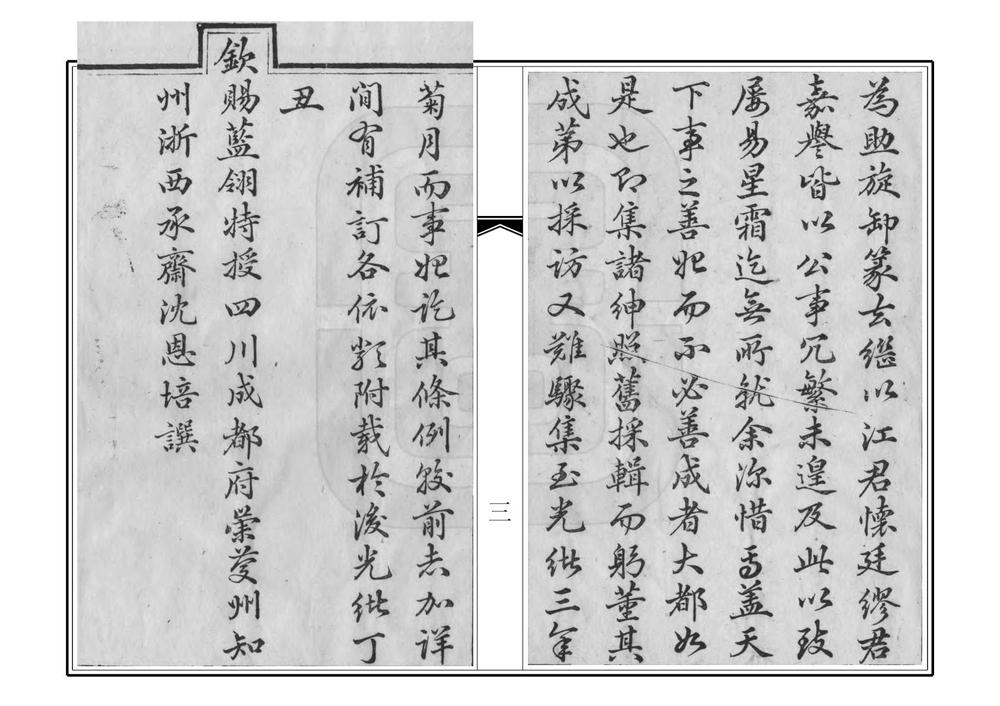 為助旋卸篆去繼以江君懷廷繆君
嘉譽皆以公事冗繁未遑及此以致
屢易星霜迄無所就余深惜焉蓋天
下事之善始而不必善成者大都如
是也即集諸紳照舊採輯而躬董其
成第以採訪又難驟集至光緒三年
三
菊月而事始訖其條例較前志加詳
間有補訂各依類附載於後光緒丁
丑
欽賜藍翎特授四川成都府崇慶州知
州浙西承齋沈恩培譔